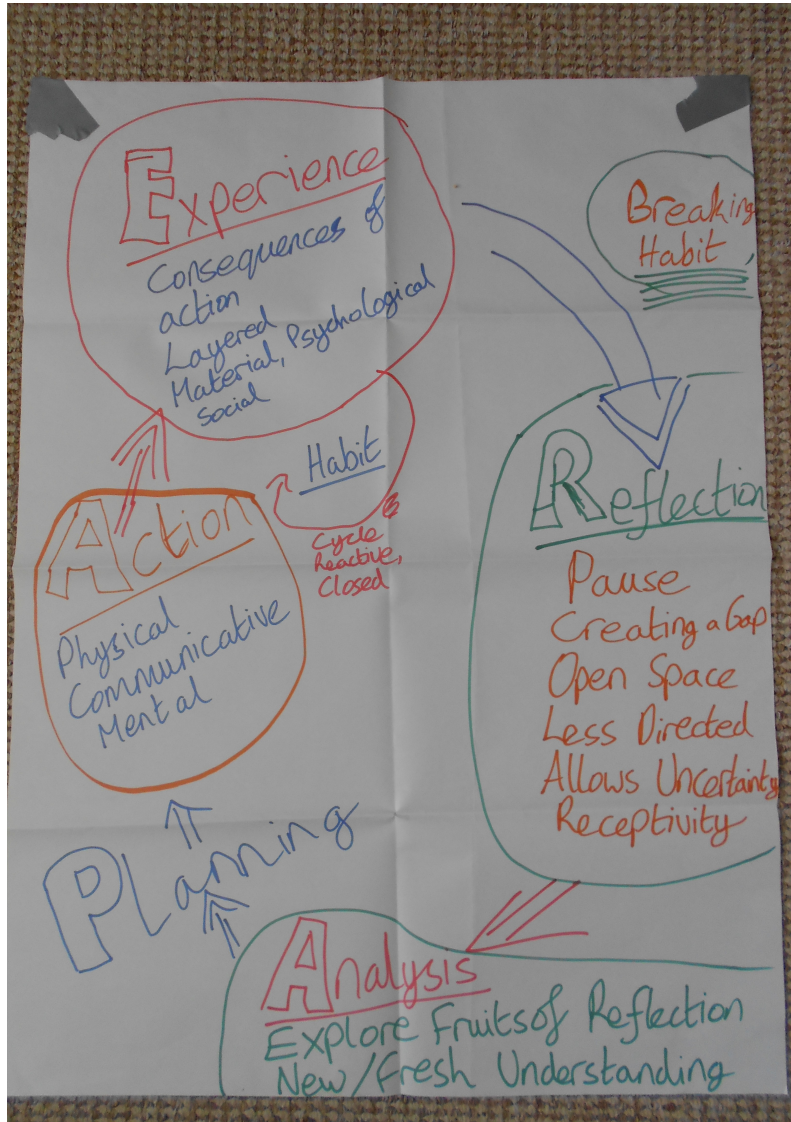 Experience
Consequences of
action
Layered
Material, Psychological
Social
Breaking
Habit
Habit
Cycle
Reactive,
Closed
Action
Physical
Communicative
Mental
Reflection
Pause
Creating a Gap
Open Space
Less Directed
Allows Uncertainty
Receptivity
Planning
Analysis
Explore Fruits of Reflection
New/Fresh Understanding